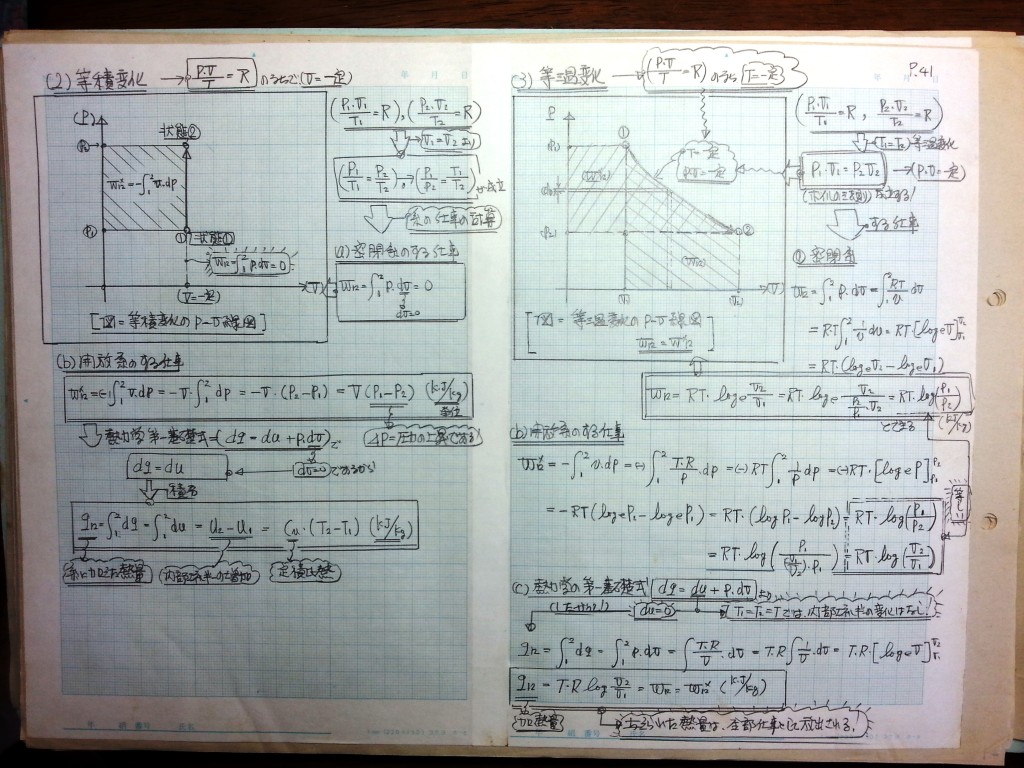 (2) 等積変化 → P・V/T = R のうちで (V=一定)
(P)
P₂
状態②
W'₁₂=-∫₁² v.dp
P₁
① 状態①
W₁₂=∫₁² P.dv = 0
(V=一定)
(V)
[下図= 等積変化のP-V線図]
(P₁V₁/T₁ = R), (P₂・V₂/T₂ = R)
V₁=V₂ より
(P₁/T₁ = P₂/T₂), → (P₁/P₂ = T₁/T₂) が成立
系の仕事の計算
(a) 密閉系のする仕事
W₁₂=∫₁² P.dv = 0
dv=0
(b) 開放系のする仕事
W'₁₂=(-)∫₁² v.dp = -V・∫₁² dp = -V・(P₂-P₁) = V(P₁-P₂) (kJ/kg)
単位
熱力学第一基礎式=(dq = du + p.dv)で
ΔP=圧力の上昇である!
dq = du
dv=0 であるから
積分
q₁₂=∫₁² dq = ∫₁² du = U₂-U₁ = Cv・(T₂-T₁) (kJ/kg)
系に加えた熱量
内部エネルギーの増加
定積比熱
P.41
(3) 等温変化 → (P・V/T = R) のうち (T=一定)
(P)
P₁
①
T=一定
P.V=一定
(W'₁₂)
P₂
②
(W₁₂)
V₁
V₂
(V)
[下図= 等温変化のP-V線図]
W₁₂ = W'₁₂
(P₁・V₁/T₁ = R, P₂・V₂/T₂ = R)
(T₁=T₂) 等温変化
P₁・V₁ = P₂・V₂ → (P.V=一定)
(ボイルの法則) が成立する!
する仕事
① 密閉系
W₁₂=∫₁² P.dv = ∫₁² RT/v dv
= R.T∫₁² 1/v dv = RT・[logeV]V₂V₁
= RT・(logeV₂ - logeV₁)
W₁₂= RT・loge V₂/V₁ = RT・loge V₂/(P₂/P₁・V₂) = RT・log(P₁/P₂)
とできる (kJ/kg)
(b) 開放系のする仕事
W'₁₂ = -∫₁² v.dp = (-)∫₁² T.R/P .dp = (-)RT∫₁² 1/P dp = (-)RT・[loge P]P₂P₁
= -RT(logeP₂-logeP₁) = RT・(logP₁-logP₂) = RT・log(P₁/P₂)
= RT・log(P₁/(V₁/V₂)・P₁) = RT・log(V₂/V₁)
等しい
(c) 熱力学の第一基礎式 (dq = du + p.dv) より
(したがって!)
du=0
T₁=T₂=Tでは、内部エネルギーの変化はなし!
q₁₂=∫₁² dq = ∫₁² P.dv = ∫T.R/V .dv = T.R∫1/V .dv = T.R・[logeV]V₂V₁
q₁₂ = T.R log V₂/V₁ = W₁₂ = W'₁₂ (kJ/kg)
加熱量
与えられた熱量は、全部仕事として放出される!